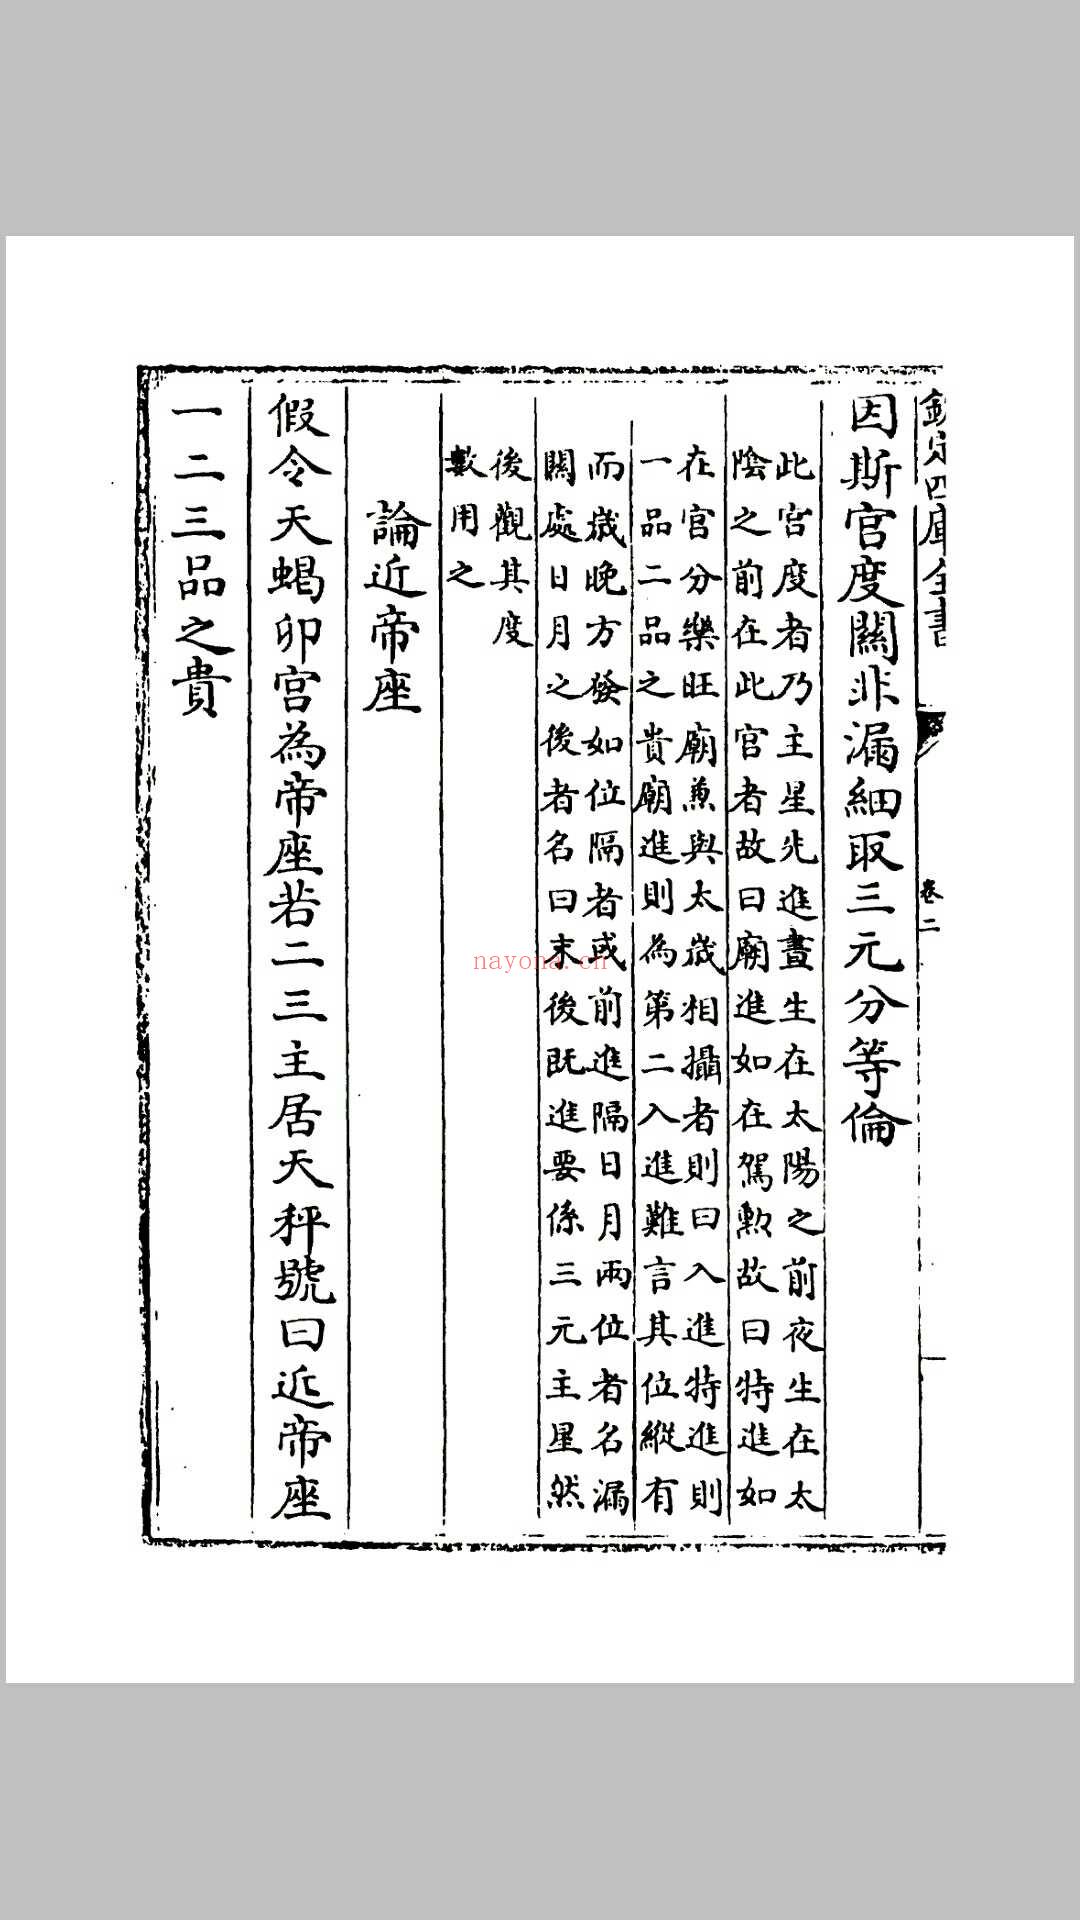 欽定四庫全書
卷二
因斯宫度關非漏細取三元分等倫
此宮度者乃主星先進晝生在太陽之前夜生在太
陰之前在此宮者故曰廟進如在駕勲故曰特進如
在宮分樂旺廟兼與太歲相攝者則曰入進特進則
一品二品之貴廟進則為第二入進難言其位縱有
而歲晚方發如位隔者或前進隔日月兩位者名漏
關處日月之後者名曰末後既進要係三元主星然
後觀其度
數用之
論近帝座
假令天蝎卯宫為帝座若二三主居天秤號曰近帝座
一二三品之貴
nayona.cn